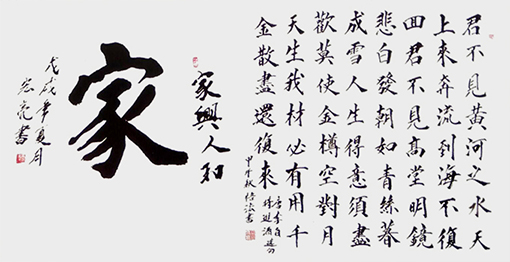 君不見黃河之水天
上來奔流到海不復
回君不見高堂明鏡
悲白發朝如青絲暮
成雪人生得意須盡
歡莫使金樽空對月
天生我材必有用千
金散盡還復來
唐李白
家興人和
家
戊戌年夏月
宏亮書